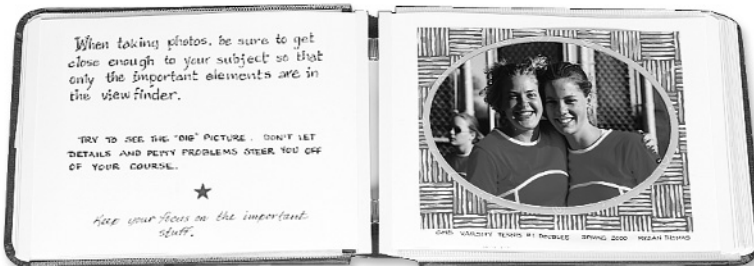 When taking photos, be sure to get
close enough to your subject so that
only the important elements are in
the viewfinder.
TRY TO SEE THE "BIG" PICTURE. DON'T LET
DETAILS AND PETTY PROBLEMS STEER YOU OFF
OF YOUR COURSE.
Keep your focus on the important
stuff.
VARSITY TENNIS #1 DOUBLES SPRING 2000